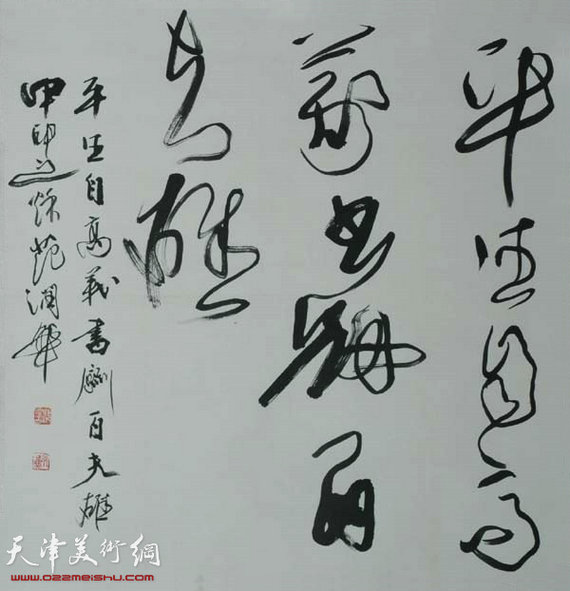 平生自高
義書劍百
夫雄
平生自高義書劍百夫雄
甲申之秋范潤華
天津美術網
www.022meishu.com